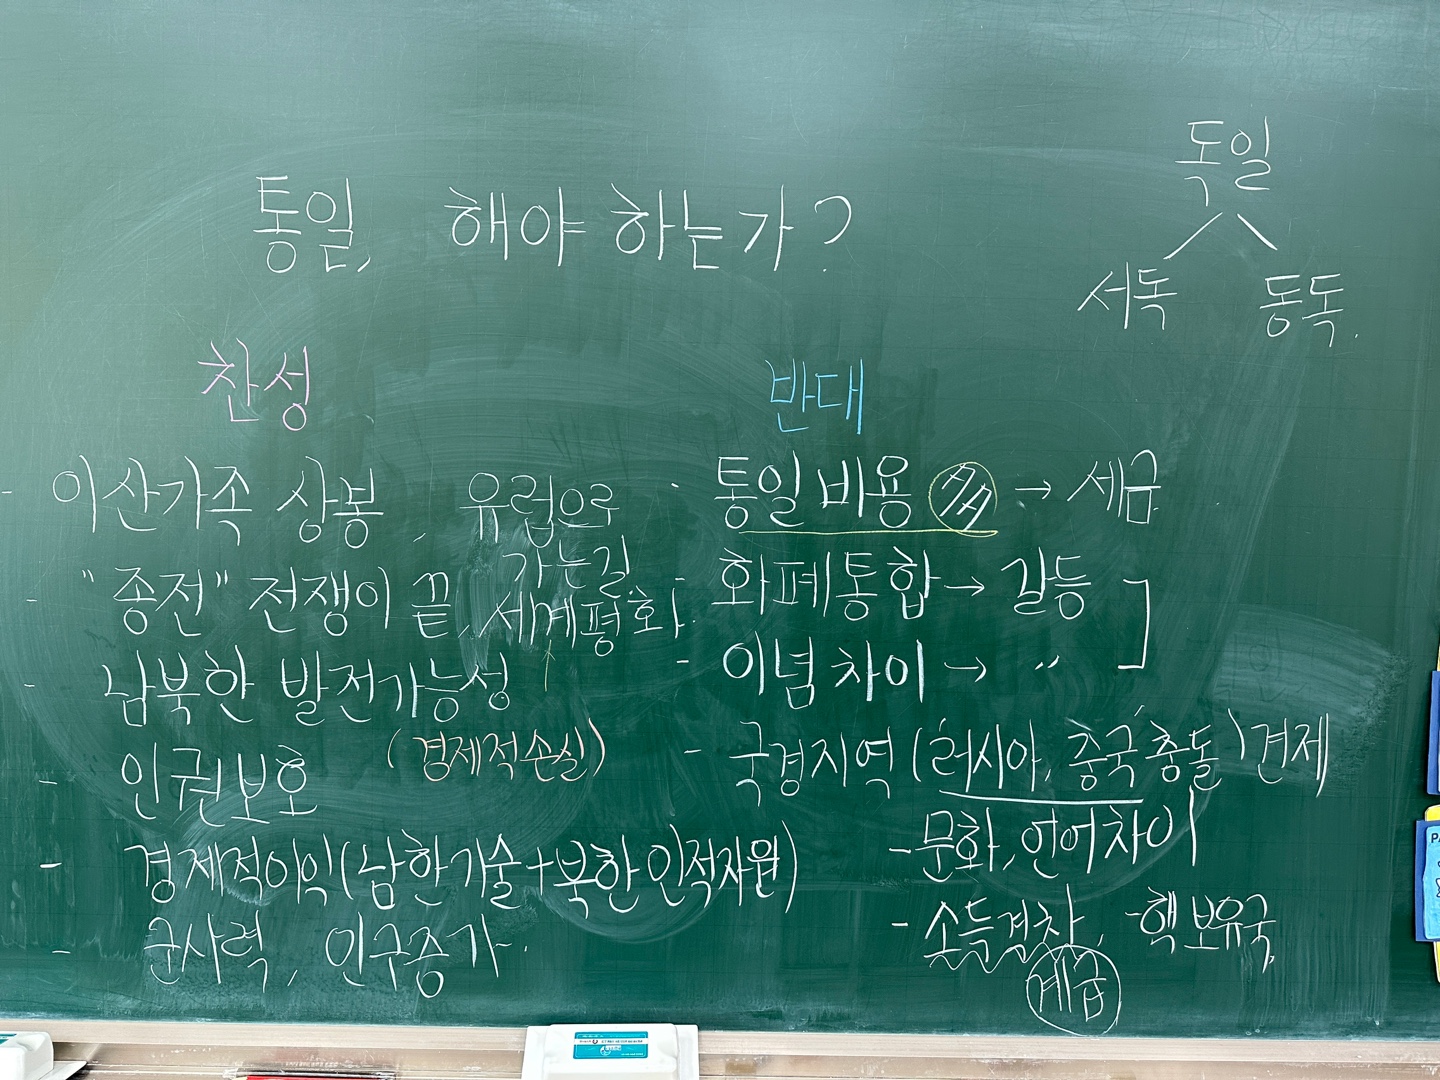 독일
서독 동독.
통일, 해야 하는가?
찬성
- 이산가족 상봉
. 유럽으로
가는길,
세계평화.
- "종전" 전쟁이 끝,
- 남북한 발전가능성
(경제적손실)
- 인권보호
- 경제적이익(남한기술+북한인적자원)
- 군사력, 인구증가.
반대
- 통일비용 多 → 세금.
- 화폐통합 → 갈등
- 이념 차이 → 〃
- 국경지역 (러시아, 중국충돌) 견제
- 문화, 언어차이
- 소득격차, - 핵보유국,
계급